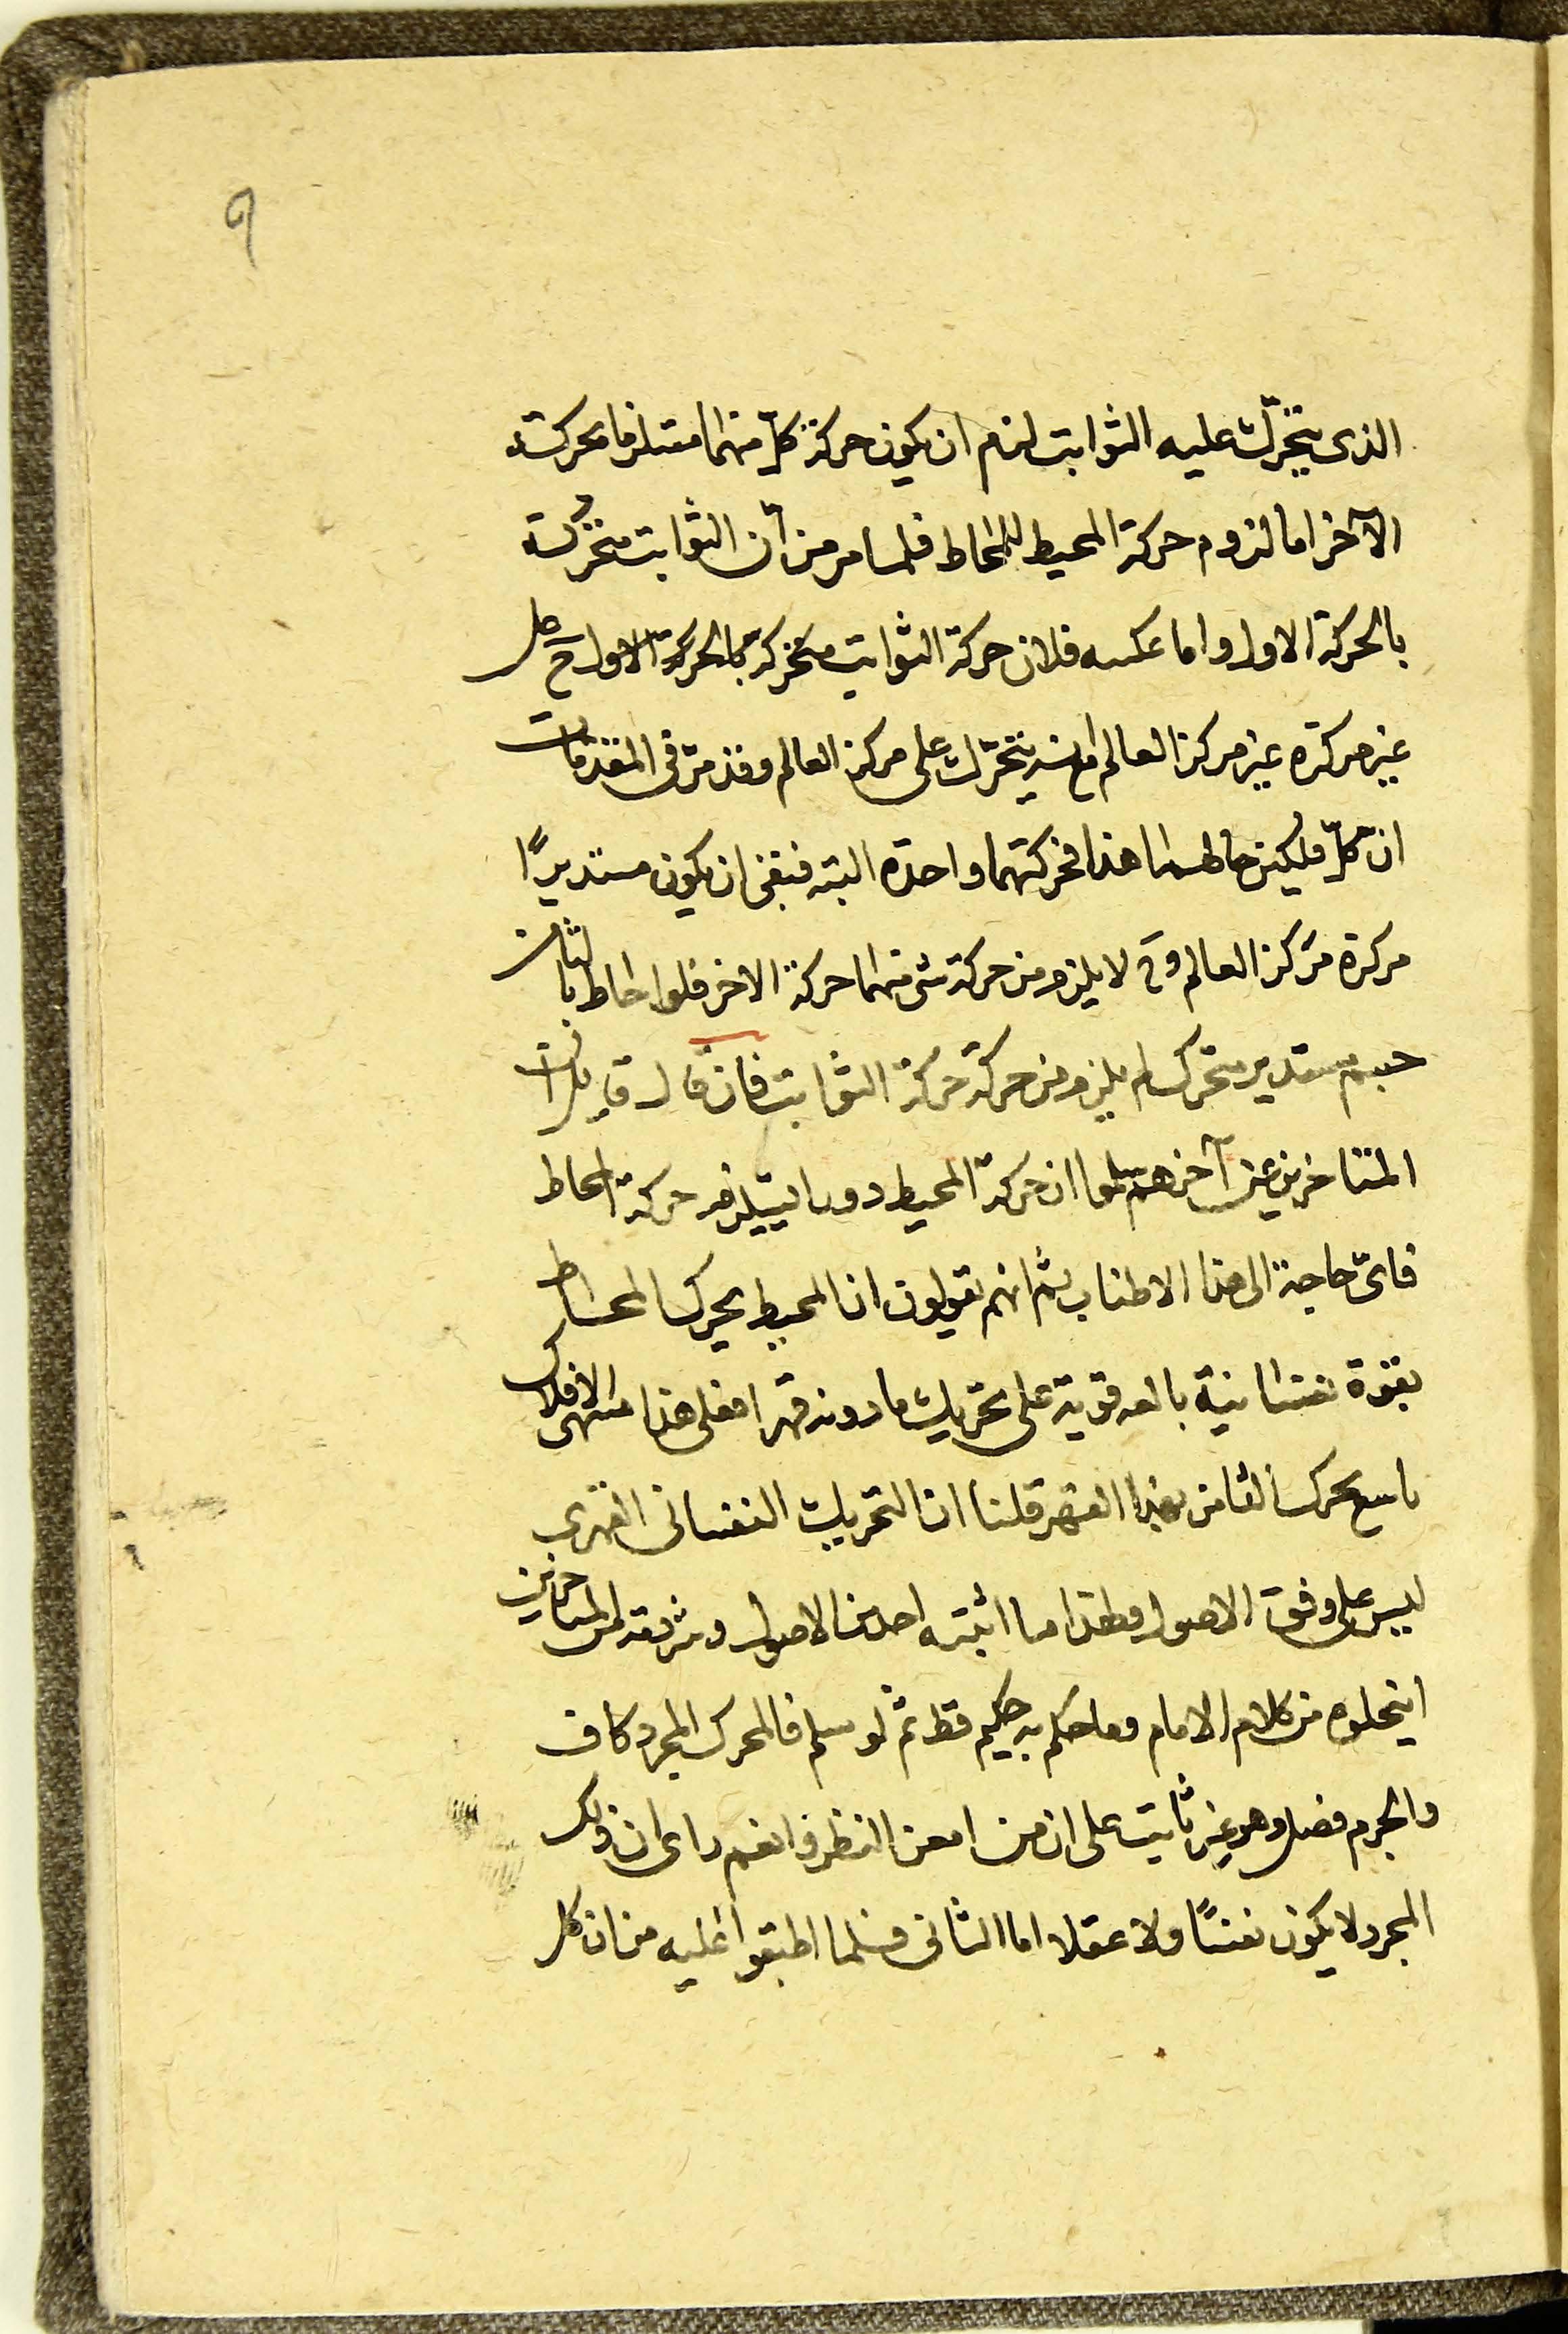 ٩
الذى يتحرّك عليه الثوابت لزم ان يكون حركة كلّ منهما مستلزما لحركة
الآخر اما لزوم حركة المحيط للمحاط فلما مر من أن الثوابت متحركة
بالحركة الاولى واما عكسه فلان حركة الثوابت متحركة بالحركة الاولى ح على
غير مركزه غير مركز العالم مع انه يتحرّك على مركز العالم وقد مرّ فى المقدمات
ان كلّ فلكين حالهما هذا فحركتهما واحدة البتة فبقى ان يكون مستديرًا
مركزه مركز العالم وح لا يلزم من حركة شئ منهما حركة الاخر فلو احاط بالثامن
جسم مستدير متحرك لم يلزم من حركته حركة الثوابت فان قال قايل ان
المتاخرين عن آخرهم سلموا ان حركة المحيط دورا يستلزم حركة المحاط
فاىّ حاجة الى هذا الاطناب ثم انهم يقولون ان المحيط يحرك المحاط
بقوة نفسانية بالغه قوية على تحريك ما دونه قهرا فعلى هذا منتهى الافلاك
تاسع يحرك الثامن بهذا القهر قلنا ان التحريك النفسانى القهرى
ليس على وفق الاصول وهذا ما اثبته احد من الاصول وشرذمة من المتاخرين
انتحلوه من كلام الامام وما حكم به حكيم قط ثم لو سلم فالمحرك المجرد كاف
والجرم فضل وهو غير ثابت على ان من امعن النظر وانعم راى ان ذلك
المجرد لا يكون نفسًا ولا عقلا اما الثانى فلما اطبقوا عليه من ان كل